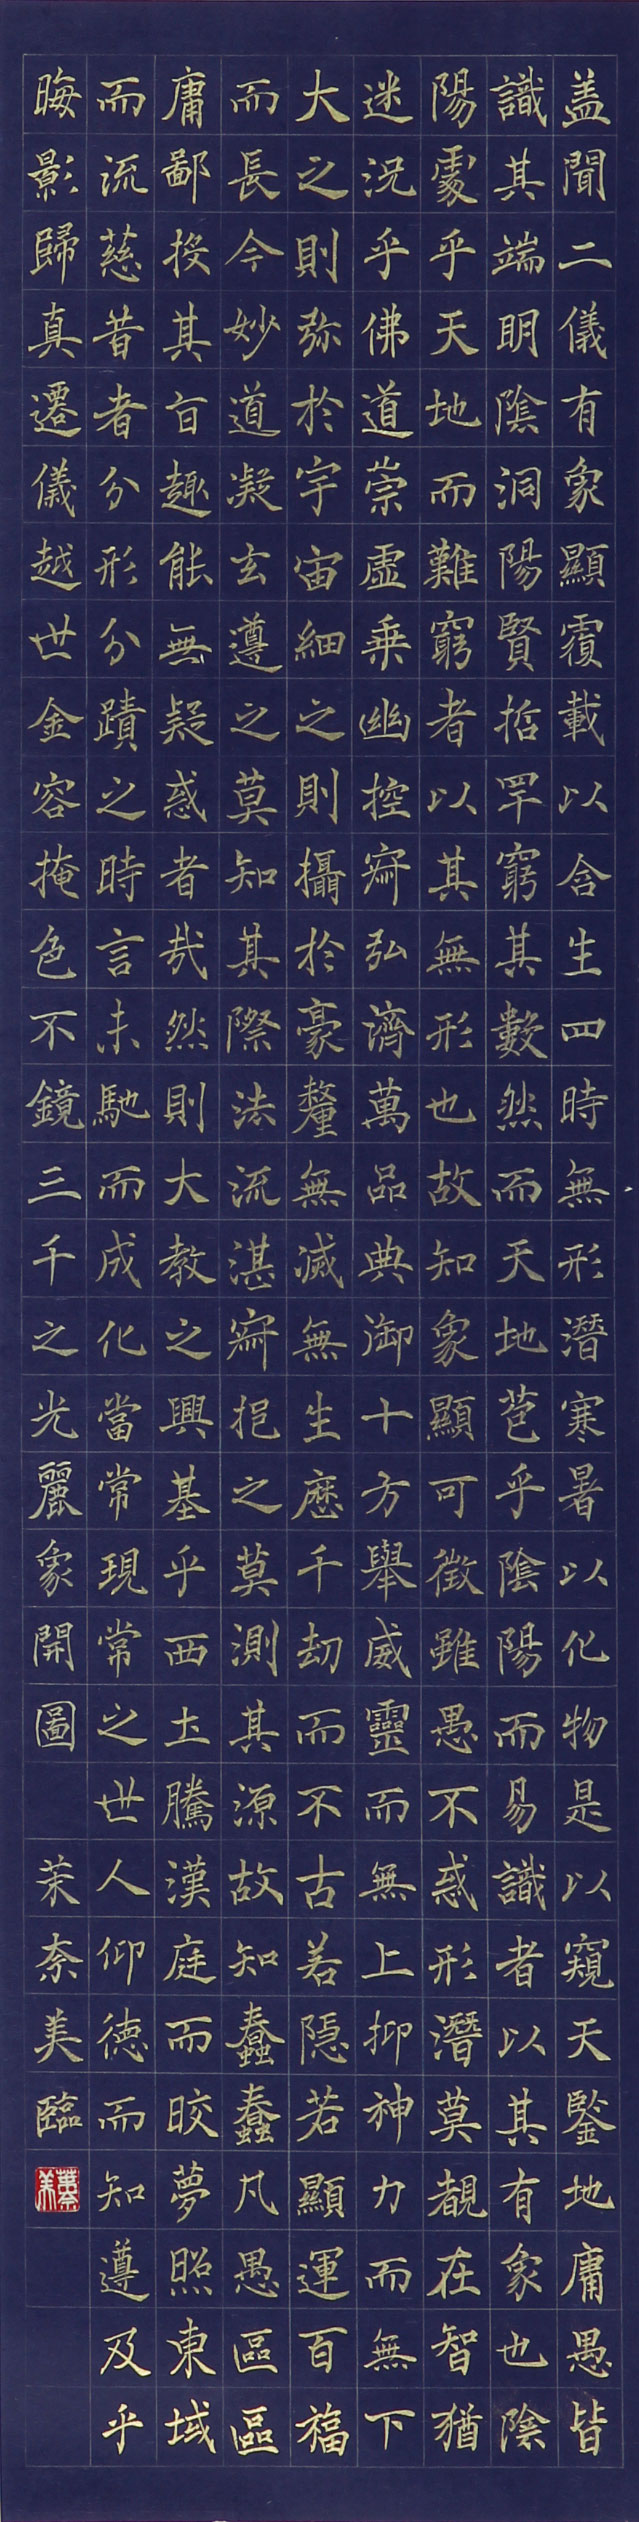 盖聞二儀有象顯覆載以含生四時無形潛寒暑以化物是以窺天鑒地庸愚皆
識其端明陰洞陽賢哲罕窮其數然而天地苞乎陰陽而易識者以其有象也陰
陽處乎天地而難窮者以其無形也故知象顯可徵雖愚不惑形潛莫覩在智猶
迷況乎佛道崇虛乗幽控寂弘濟萬品典御十方舉威靈而無上抑神力而無下
大之則弥於宇宙細之則攝於豪釐無滅無生歷千劫而不古若隱若顯運百福
而長今妙道凝玄遵之莫知其際法流湛寂挹之莫測其源故知蠢蠢凡愚區區
庸鄙投其旨趣能無疑惑者哉然則大教之興基乎西土騰漢庭而晈夢照東域
而流慈昔者分形分蹟之時言未馳而成化當常現常之世人仰德而知遵及乎
晦影歸真遷儀越世金容掩色不鏡三千之光麗象開圖 茉奈美臨
茉奈美